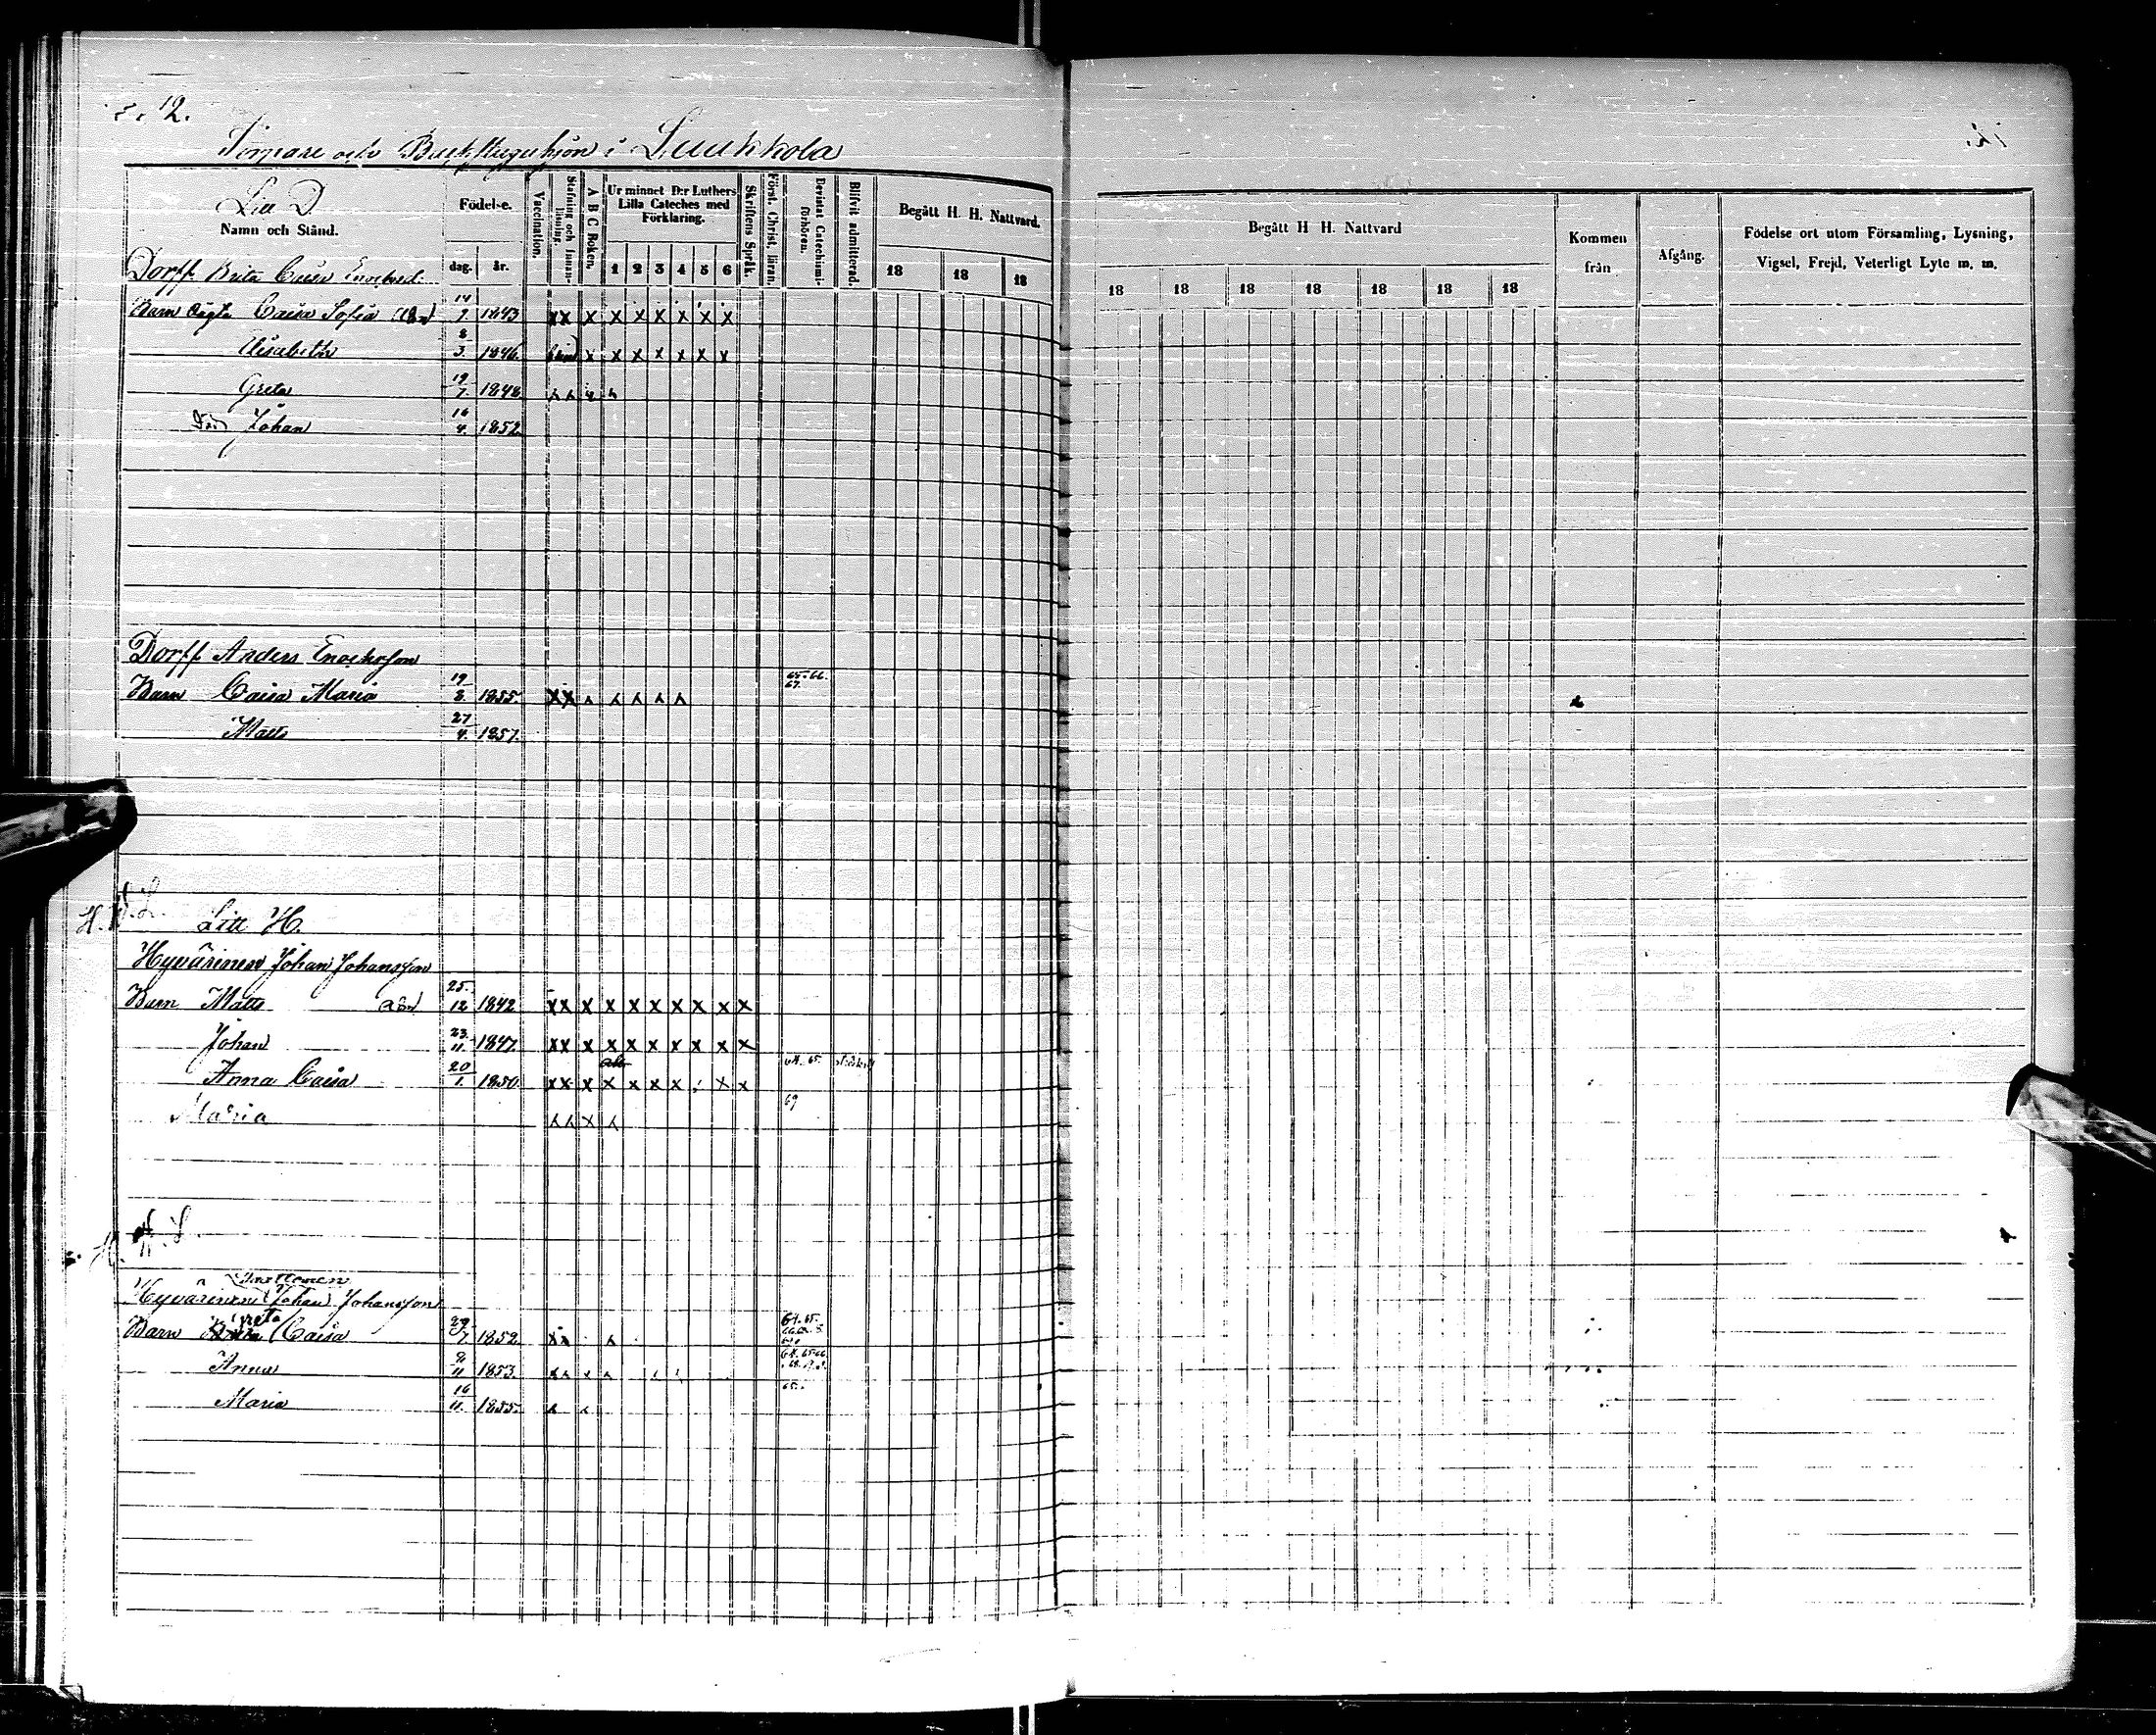 12.
12.
Torpare och Backstuguhjon i Luukkola
Litt D.
Namn och Stånd.
Födelse.
dag. år.
Vaccination.
Stafning och Innanläsning.
A B C Boken.
Ur minnet D:r Luthers Lilla Cateches med Förklaring.
1 2 3 4 5 6
Skriftens Språk.
Först. Christ. läran.
Bevistat Catechismiförhören.
Blifvit admitterad.
Begått H. H. Nattvard.
18 18 18
Begått H H. Nattvard
18 18 18 18 18 18 18
Kommen från
Afgång.
Födelse ort utom Församling, Lysning, Vigsel, Frejd, Veterligt Lyte m. m.
Dorff Brita Caisa Enochsd.
Barn Oägta Caisa Sofia 14/7 1843 x x x x x x x x x
Elisabeth 8/3 1846 x x x x x x x
Greta 19/7 1848
Död Johan 16/4 1852
Dorff Anders Enochsson
Barn Caisa Maria 19/8 1855. x x 65-66. 67.
Matts 27/4 1857.
H. H. L.
Litt H.
Hyvärinen Johan Johansson
Barn Matts 25/12 1842 x x x x x x x x x x
Johan 23/11 1847. x x x x x x x x x x
Anna Caisa 20/1 1850. x x x x x x x x x
Maria 69
Hyvärinen Johan Johansson
Barn Greta Caisa 29/7 1852. 64. 65.
Anna 9/11 1853.
Maria 16/11 1855. 65.